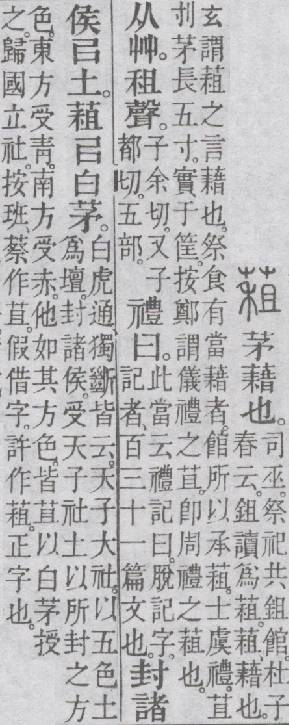 蒩
茅藉也。
司巫。祭祀共鉏館。杜子
春云。鉏讀爲蒩。蒩、藉也。
玄謂蒩之言藉也。祭食有當藉者。館所以承蒩。士虞禮。苴
刌茅長五寸。實于筐。按鄭謂儀禮之苴。卽周禮之蒩也。
从艸。租聲。
子余切。又子
都切。五部。
禮曰。
此當云禮記曰。脫記字。
記者、百三十一篇文也。
封諸
侯㠯土。蒩㠯白茅。
白虎通、獨斷皆云。天子大社。以五色土
爲壇。封諸侯。受天子社土以所封之方
色。東方受靑。南方受赤。他如其方色。皆苴以白茅授
之。歸國立社。按班蔡作苴。假借字。許作蒩。正字也。